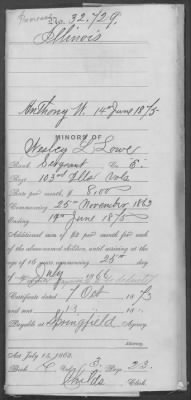 No. 32.729.
Illinois
Anthony W. 14 June 1875
MINORS OF
Wesley L Lower
Rank Sergeant Co. E.
Regt. 103rd Ills Vols
Rate per month, $ 8,00
Commencing 25th November 1863
Ending 19th June 1875
Additional sum of $2 per month for each
of the above-named children, until arriving at the
age of 16 years, commencing 25th day
of July 1866
Certificate dated 7 Oct 1873
and sent 13 187
Payable at Springfield Agency
Act July 14, 1862.
Book C Vol. 3. Page 23.
Childs Clerk.